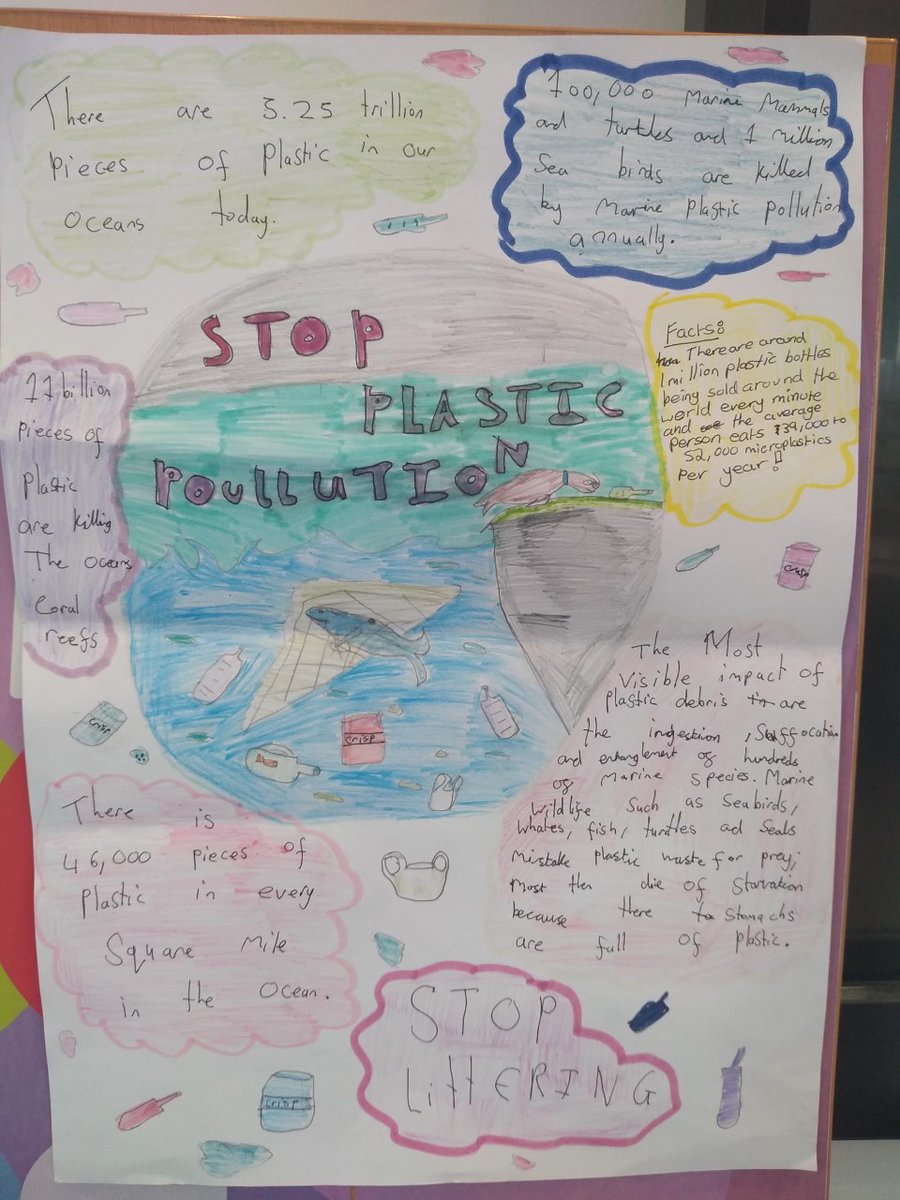 There are 5.25 trillion
pieces of plastic in our
oceans today.
100,000 Marine Mammals
and turtles and 1 million
Sea birds are killed
by Marine plastic pollution
annually.
STOP
PLASTIC
POULLUTION
Facts:
There are around
1 million plastic bottles
being sold around the
world every minute
and the average
person eats 39,000 to
52,000 microplastics
per year!
11 billion
pieces of
plastic
are killing
The oceans
Coral
reefs
The Most
Visible impact of
plastic debris are
the ingestion, Suffocation
and entanglement of hundreds
of marine species. Marine
wildlife such as Seabirds,
whales, fish, turtles ad Seals
mistake plastic waste for prey;
Most then die of Starvation
because there Stomachs
are full of plastic.
crisp
crisp
crisp
There is
46,000 pieces of
plastic in every
Square Mile
in the Ocean.
STOP
LittERING
crisp